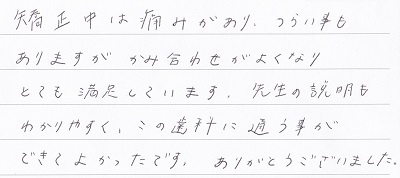 矯正中は痛みがあり、つらい事も
ありますが かみ合わせがよくなり
とても満足しています。先生の説明も
わかりやすく、この歯科に通う事が
できてよかったです。ありがとうございました。